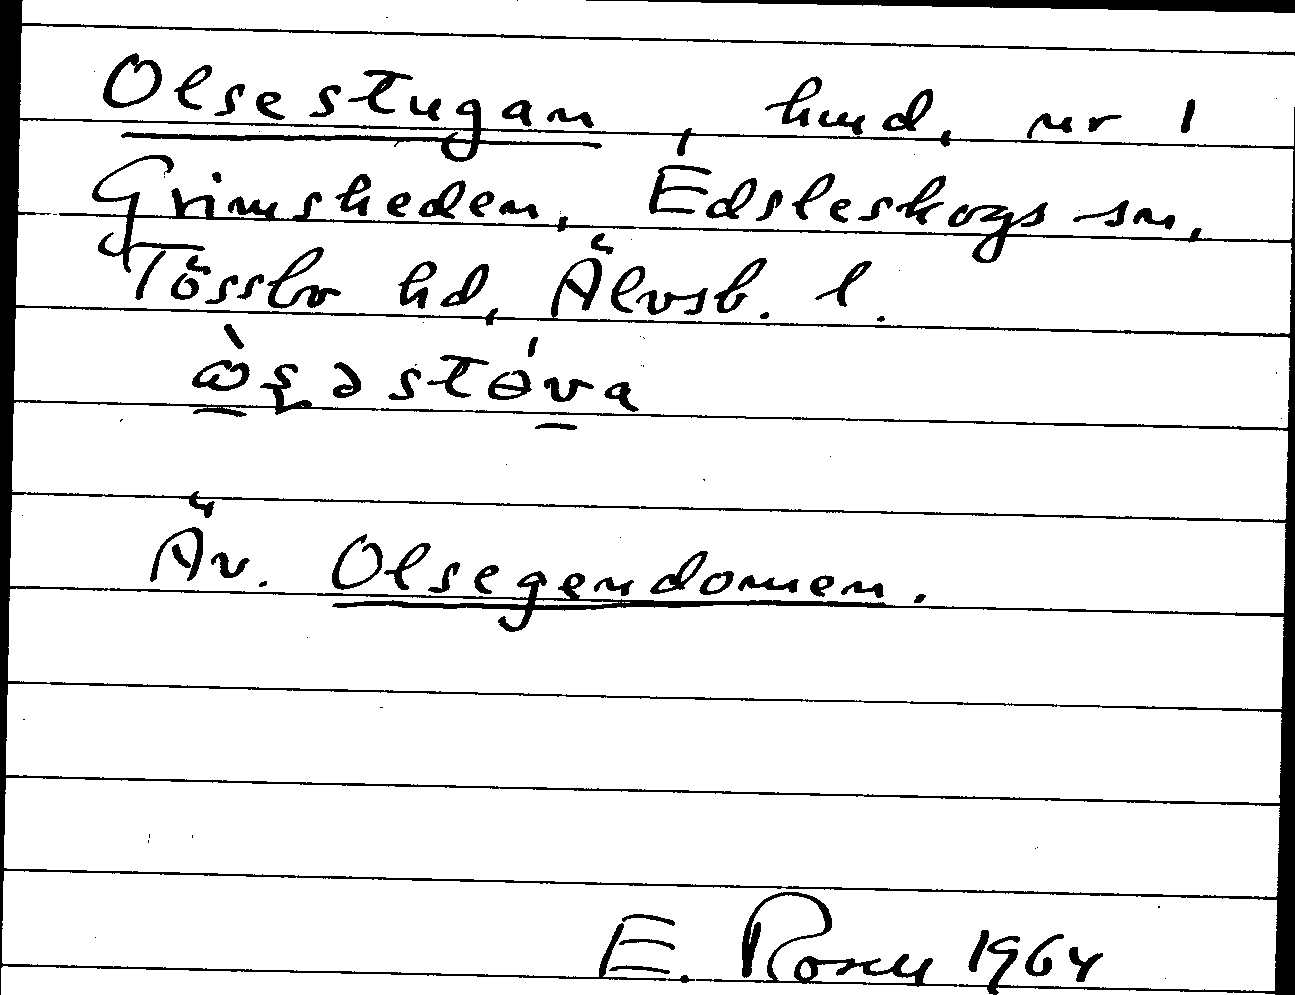 Olsestugan, hmd, nr 1
Grimsheden, Edsleskogs sn,
Tössbo hd, Älvsb. l.
Äv. Olsegendomen.
E. 1964